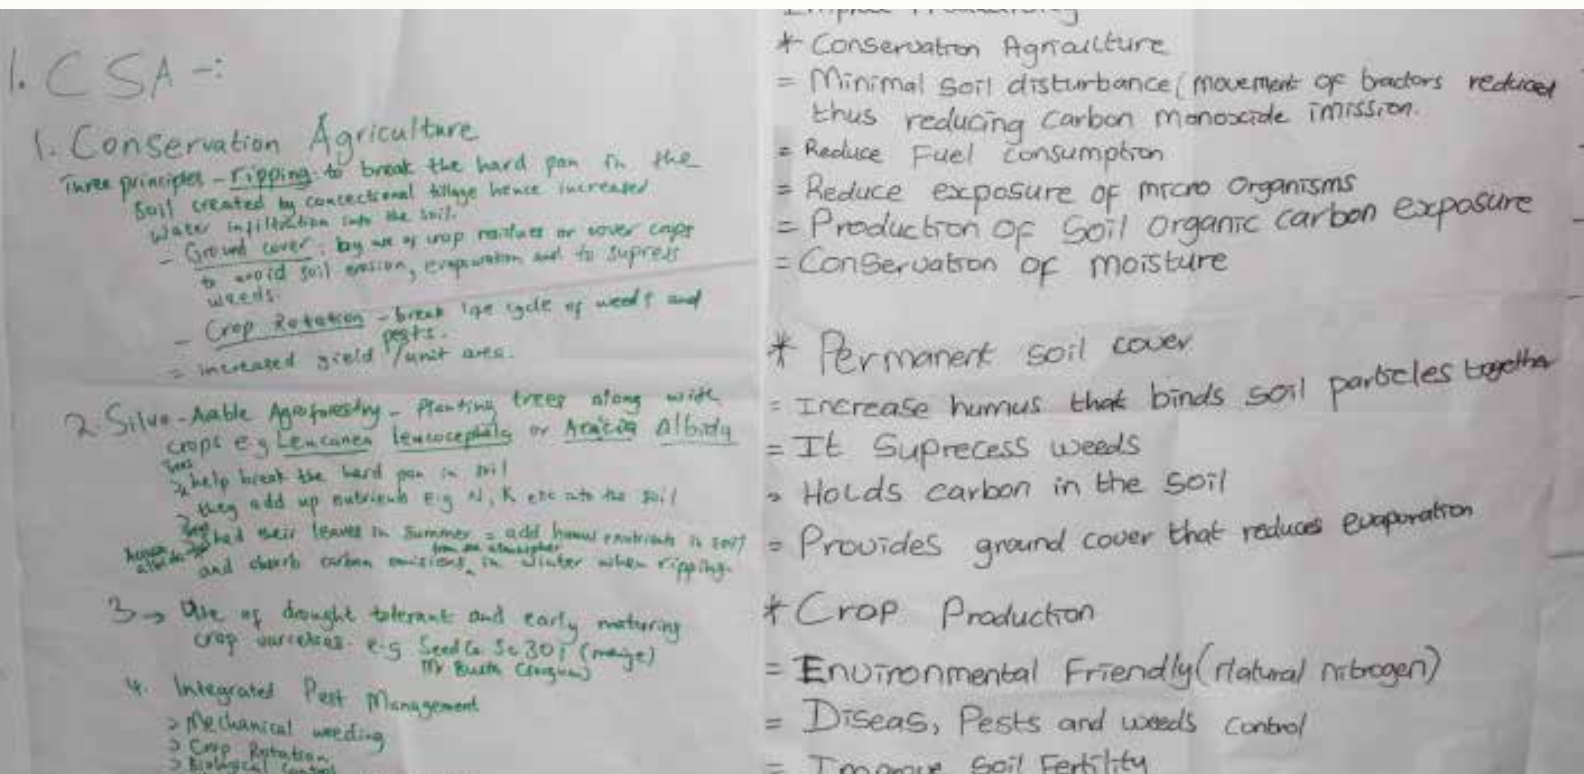 1. CSA -:
1. Conservation Agriculture
Three principles - ripping to break the hard pan in the
soil created by convectional tillage hence increased
water infiltration into the soil.
- Ground cover: by use of crop residues or cover crops
to avoid soil erosion, evaporation and to supress
weeds.
- Crop Rotation - break life cycle of weeds and
pests.
= increased yield /unit area.
2. Silvo-Arable Agroforestry - Planting trees along with
crops e.g Leucanea leucocephala or Acacia Albida
> help break the hard pan in soil
> they add up nutrients e.g N, K etc into the soil
shed their leaves in summer = add humus nutrients in soil
and absorb carbon emissions in winter when ripping.
3 → Use of drought tolerant and early maturing
crop varieties. e.g Seed Co Sc 301 (maize)
Mr Bush
4. Integrated Pest Management
> Mechanical weeding
> Crop Rotation
> Biological Control
* Conservation Agriculture
= Minimal Soil disturbance (movement of tractors reduced
thus reducing carbon monoxide imission.
= Reduce Fuel Consumption
= Reduce exposure of micro Organisms
= Production of Soil Organic carbon exposure
= Conservation of moisture
* Permanent soil cover
= Increase humus that binds soil particles together
= It Suprecess weeds
= Holds carbon in the soil
= Provides ground cover that reduces evaporation
* Crop Production
= Environmental Friendly (Natural nitrogen)
= Diseas, Pests and weeds control
= Improve Soil Fertility